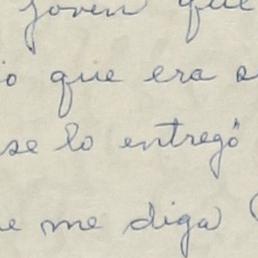 joven que
que era
se lo entregó"
me diga (